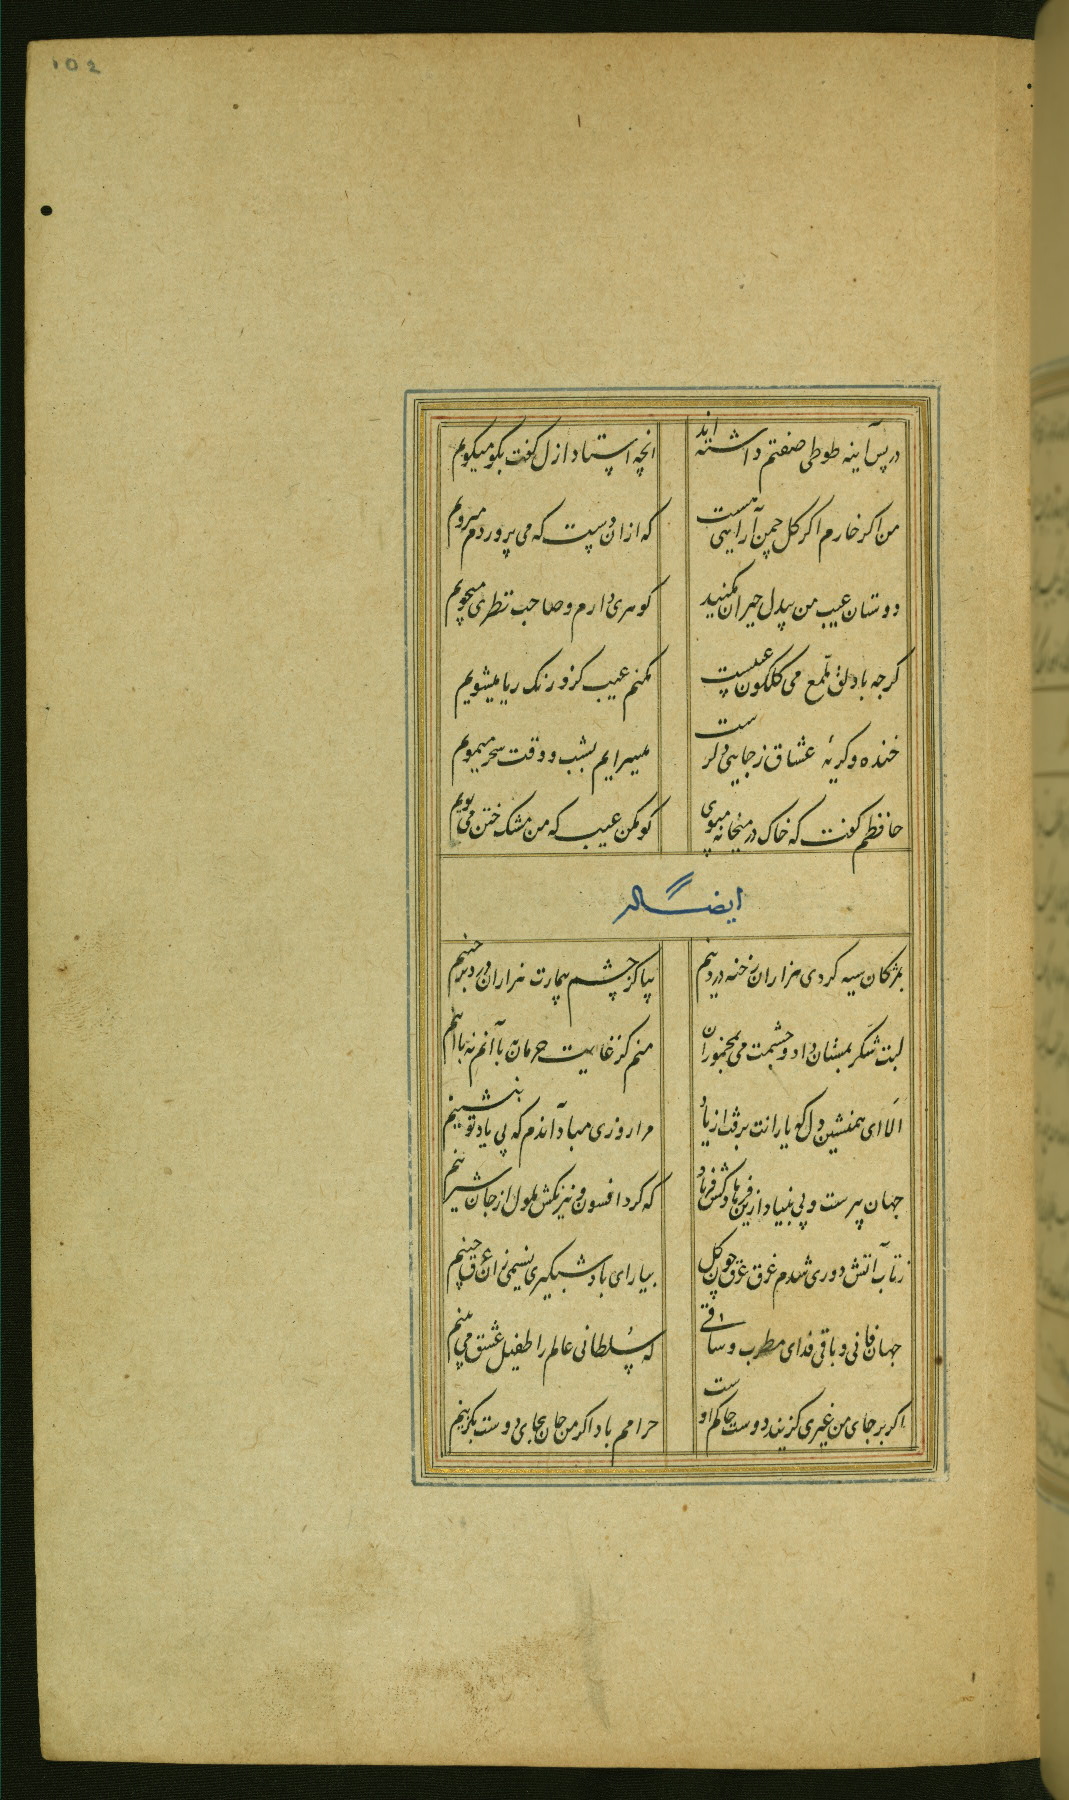 102
در پس آینه طوطی صفتم داشته اند انچه استاد ازل کفت بکو میکویم
من اکر خارم اکر کل چمن آرایی هست که ازان دست که می پروردم میرویم
دوستان عیب من بیدل حیران مکنید کوهری دارم و صاحب نظری میجویم
کرچه با دلق ملمع می کلکون عیبست مکنم عیب کزو رنک ریا میشویم
خنده و کریهٔ عشاق ز جایی دکرست میسرایم بشب و وقت سحر میمویم
حافظم کفت که خاک در میخانه مبوی کو مکن عیب که من مشک ختن می بویم
ایضا له
بمژکان سیه کردی هزاران رخنه در دینم بیا کز چشم بیمارت هزاران درد برچینم
لبت شکر بمستان داد و چشمت می بمخموران منم کز غایت حرمان نه با آنم نه با اینم
الا ای همنشین دل که یارانت برفت از یاد مرا روزی مباد آندم که بی یاد تو بنشینم
جهان پیرست و بی بنیاد ازین فرهادکش فریاد که کرد افسون و نیرنکش ملول از جان شیرینم
ز تاب آتش دوری شدم غرق عرق چون کل بیار ای باد شبکیری نسیمی زان عرق چینم
جهان فانی و باقی فدای مطرب و ساقی که سلطانی عالم را طفیل عشق می بینم
اکر بر جای من غیری کزیند دوست حاکم اوست حرامم باد اکر من جان بجای دوست بکزینم